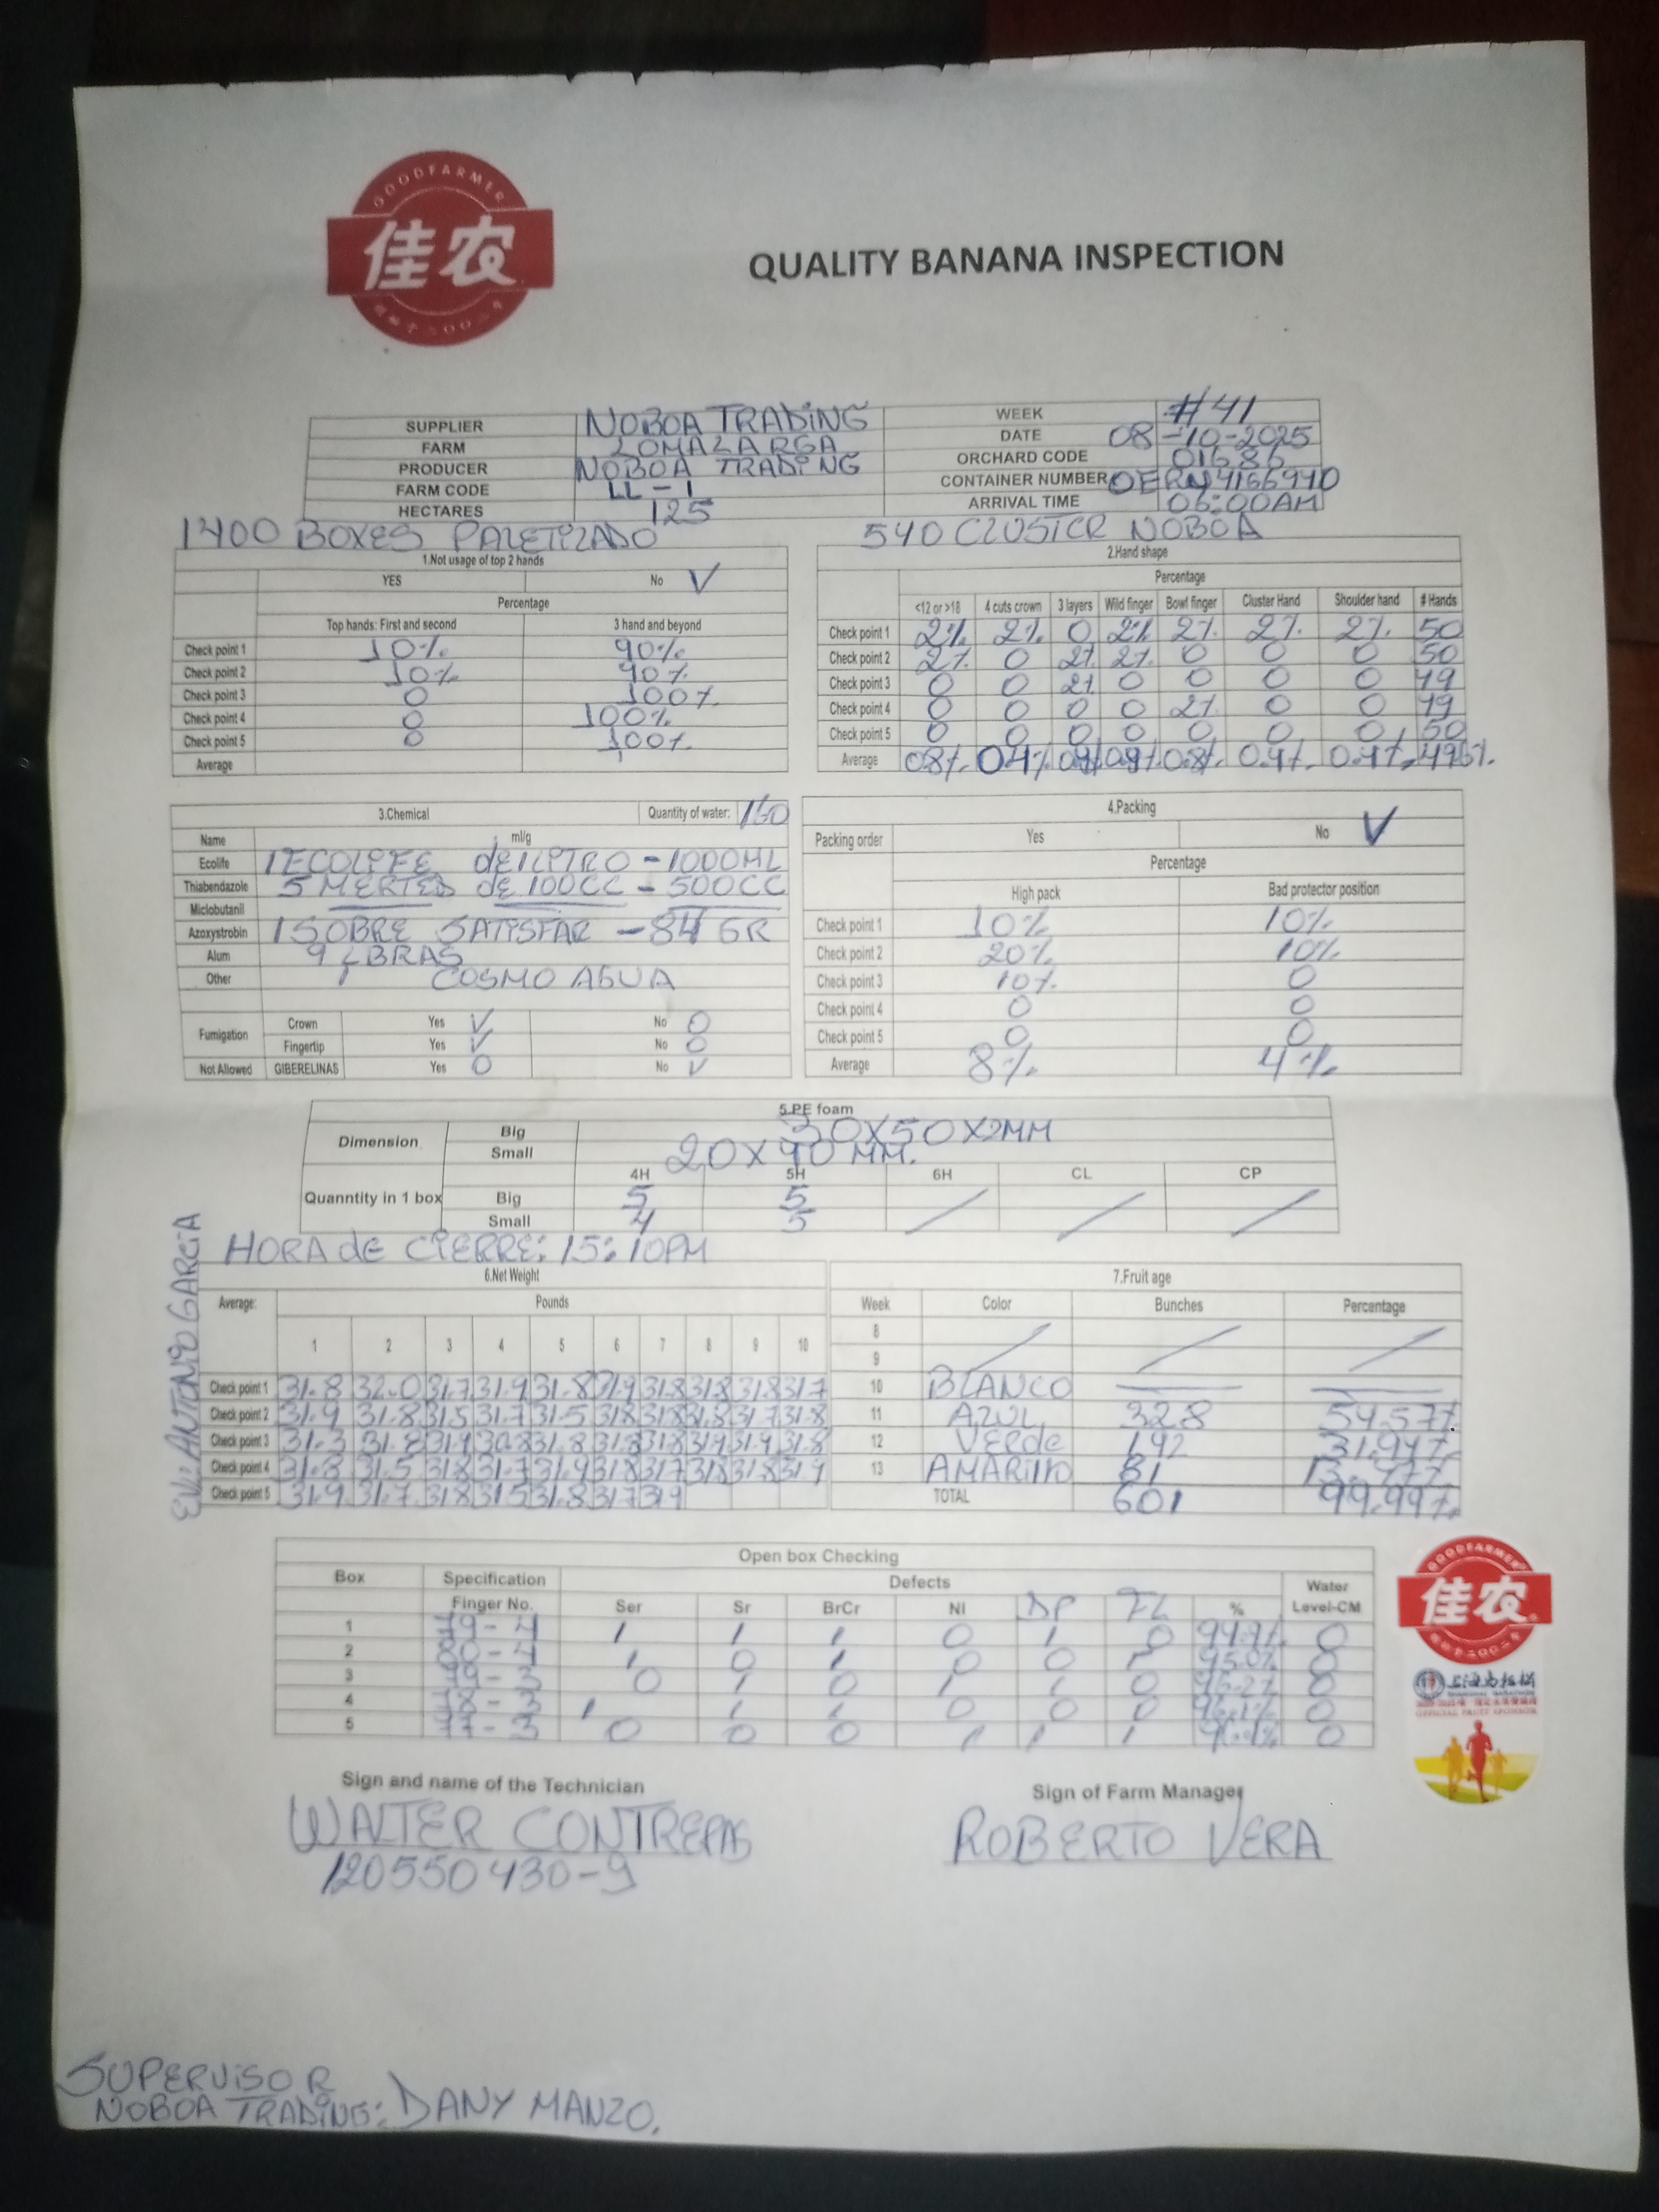 GOODFARMER
佳农
QUALITY BANANA INSPECTION
SUPPLIER NOBOA TRADING WEEK #41
FARM LOMALARGA DATE 08-10-2025
PRODUCER NOBOA TRADING ORCHARD CODE 01686
FARM CODE LL-1 CONTAINER NUMBER OERN4166940
HECTARES 125 ARRIVAL TIME 06:00AM
1400 BOXES PALETIZADO 540 CLUSTER NOBOA
1.Not usage of top 2 hands
YES No ✓
Percentage
Top hands: First and second 3 hand and beyond
Check point 1 10% 90%
Check point 2 10% 90%
Check point 3 0 100%
Check point 4 0 100%
Check point 5 0 100%
Average
2.Hand shape
Percentage
<12 or >18 4 cuts crown 3 layers Wild finger Bowl finger Cluster Hand Shoulder hand # Hands
Check point 1 2% 2% 0 2% 2% 2% 2% 50
Check point 2 2% 0 2% 2% 0 0 0 50
Check point 3 0 0 2% 0 0 0 0 49
Check point 4 0 0 0 0 2% 0 0 49
Check point 5 0 0 0 0 0 0 0 50
Average 0.8% 0.4% 0.8% 0.4% 0.4%
3.Chemical Quantity of water: 160
Name ml/g
Ecolife 1 ECOLIFE de 1 LITRO - 1000ML
Thiabendazole 5 MERTED de 100CC - 500CC
Miclobutanil
Azoxystrobin 1 SOBRE SATISFAR - 84 GR
Alum 9 LBRAS
Other 1 COSMO AGUA
Fumigation Crown Yes ✓ No 0
Fingertip Yes ✓ No 0
Not Allowed GIBERELINAS Yes 0 No ✓
4.Packing
Packing order Yes No ✓
Percentage
High pack Bad protector position
Check point 1 10% 10%
Check point 2 20% 10%
Check point 3 10% 0
Check point 4 0 0
Check point 5 0 0
Average 8% 4%
5.PE foam
Dimension Big 30X50X2MM
Small 20X90 MM.
4H 5H 6H CL CP
Quanntity in 1 box Big 5 5
Small 4 5
HORA de CIERRE: 15:10PM
EV: ANTONIO GARCIA
6.Net Weight
Average: Pounds
1 2 3 4 5 6 7 8 9 10
Check point 1 31.8 32.0 31.7 31.9 31.8 31.9 31.8 31.8 31.8 31.7
Check point 2 31.9 31.8 31.5 31.7 31.5 31.8 31.8 31.8 31.7 31.8
Check point 3 31.3 31.8 31.8 31.8 31.9 31.9 31.8
Check point 4 31.5 31.8 31.7 31.9 31.8 31.7 31.8 31.8 31.9
Check point 5 31.9 31.7 31.8 31.5 31.8 31.7 31.9
7.Fruit age
Week Color Bunches Percentage
8
9
10 BLANCO
11 AZUL 328 54.57%
12 VERde 192 31.94%
13 AMARILLO 81 13.47%
TOTAL 601 99.99%
Open box Checking
Box Specification Defects Water
Finger No. Ser Sr BrCr NI DP FL % Level-CM
1 1 1 1 0 1 0 0
2 1 0 1 0 0 0
3 0 1 0 1 1 0 0
4 1 1 1 0 0 0 0
5 0 0 0 1 1 1 0
GOODFARMER
佳农
OFFICIAL FRUIT SPONSOR
Sign and name of the Technician Sign of Farm Manager
WALTER CONTRERAS ROBERTO VERA
120550430-9
SUPERVISOR
NOBOA TRADING: DANY MANZO.